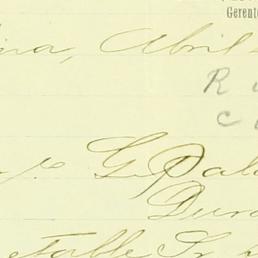 Gerente
ina, Abril
R
C
G. Pala
Dura
etable Sr